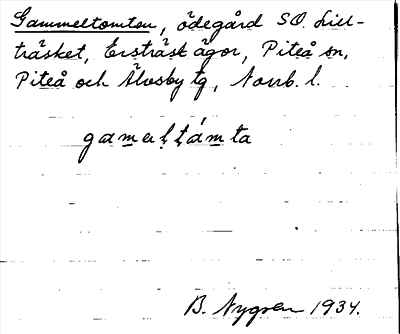 Gammeltomten, ödegård SO. Lill-
träsket, Ersträsk ägor, Piteå sn,
Piteå och Älvsby tg, Norrb. l.
gamaltámta
B. Nygren 1934.